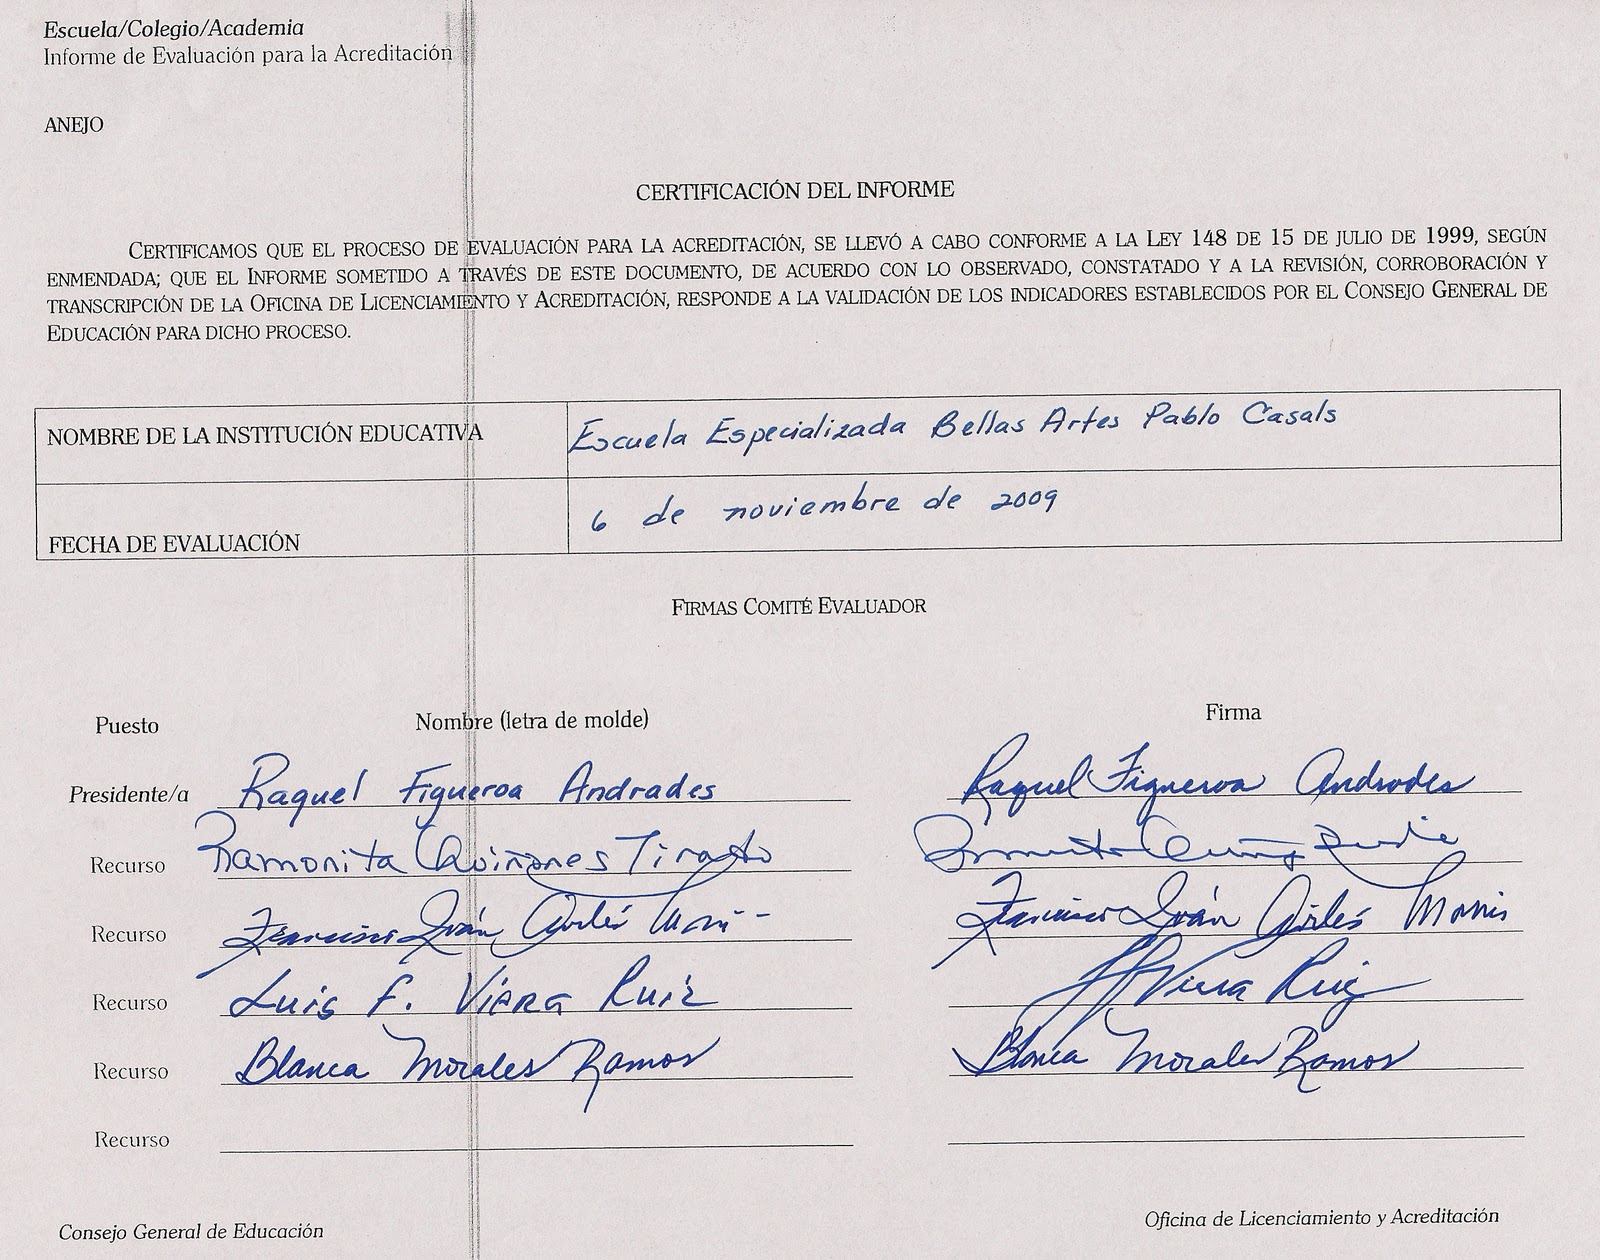 Escuela/Colegio/Academia
Informe de Evaluación para la Acreditación
ANEJO
CERTIFICACIÓN DEL INFORME
CERTIFICAMOS QUE EL PROCESO DE EVALUACIÓN PARA LA ACREDITACIÓN, SE LLEVÓ A CABO CONFORME A LA LEY 148 DE 15 DE JULIO DE 1999, SEGÚN
ENMENDADA; QUE EL INFORME SOMETIDO A TRAVÉS DE ESTE DOCUMENTO, DE ACUERDO CON LO OBSERVADO, CONSTATADO Y A LA REVISIÓN, CORROBORACIÓN Y
TRANSCRIPCIÓN DE LA OFICINA DE LICENCIAMIENTO Y ACREDITACIÓN, RESPONDE A LA VALIDACIÓN DE LOS INDICADORES ESTABLECIDOS POR EL CONSEJO GENERAL DE
EDUCACIÓN PARA DICHO PROCESO.
NOMBRE DE LA INSTITUCIÓN EDUCATIVA Escuela Especializada Bellas Artes Pablo Casals
FECHA DE EVALUACIÓN 6 de noviembre de 2009
FIRMAS COMITÉ EVALUADOR
Puesto Nombre (letra de molde) Firma
Presidente/a Raquel Figueroa Andrades Raquel Figueroa Andrades
Recurso Ramonita Quiñones
Recurso Francisco Iván Francisco Iván
Recurso Luis F. Viera Ruiz Viera Ruiz
Recurso Blanca Morales Ramos Blanca Morales Ramos
Recurso
Consejo General de Educación Oficina de Licenciamiento y Acreditación